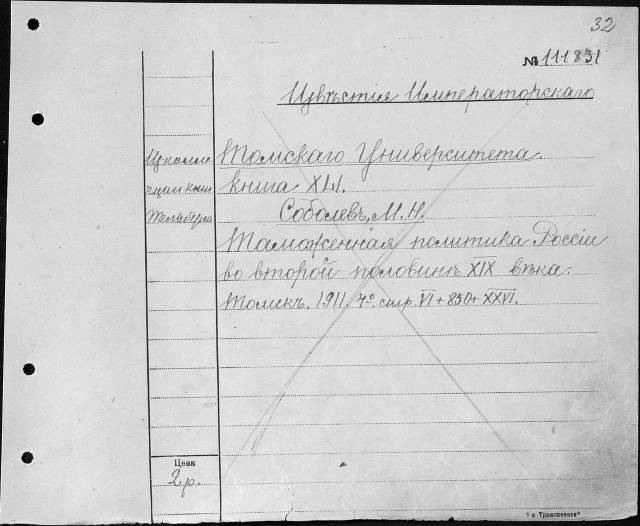 32
№ 111831
Извѣстія Императорскаго
Томскаго Университета.
книга XLI.
Соболевъ, М. Н.
Таможенная политика Россіи
во второй половинѣ XIX вѣка.
Томскъ. 1911. 4º. стр. VI + 850 + XXVI.
Из коллек
ции книг
Цена
2 р.